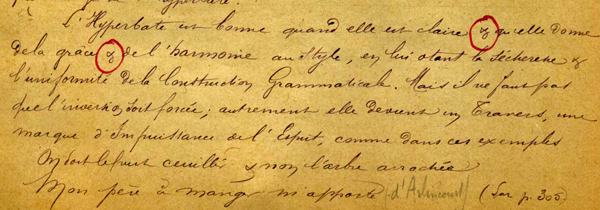 L'Hyperbate est bonne quand elle est claire & qu'elle donne
de la grâce & de l'harmonie au Style, en lui otant la Sécheresse &
l'uniformité de la Construction Grammaticale. Mais il ne faut pas
que l'inversion soit forcée, autrement elle devient un Travers, une
marque d'Impuissance de l'Esprit, comme dans ces exemples
On doit le fruit cueilli & non l'arbre arrachée
Mon père à manger m'apporte (d'Arlincourt) ( p. 305)